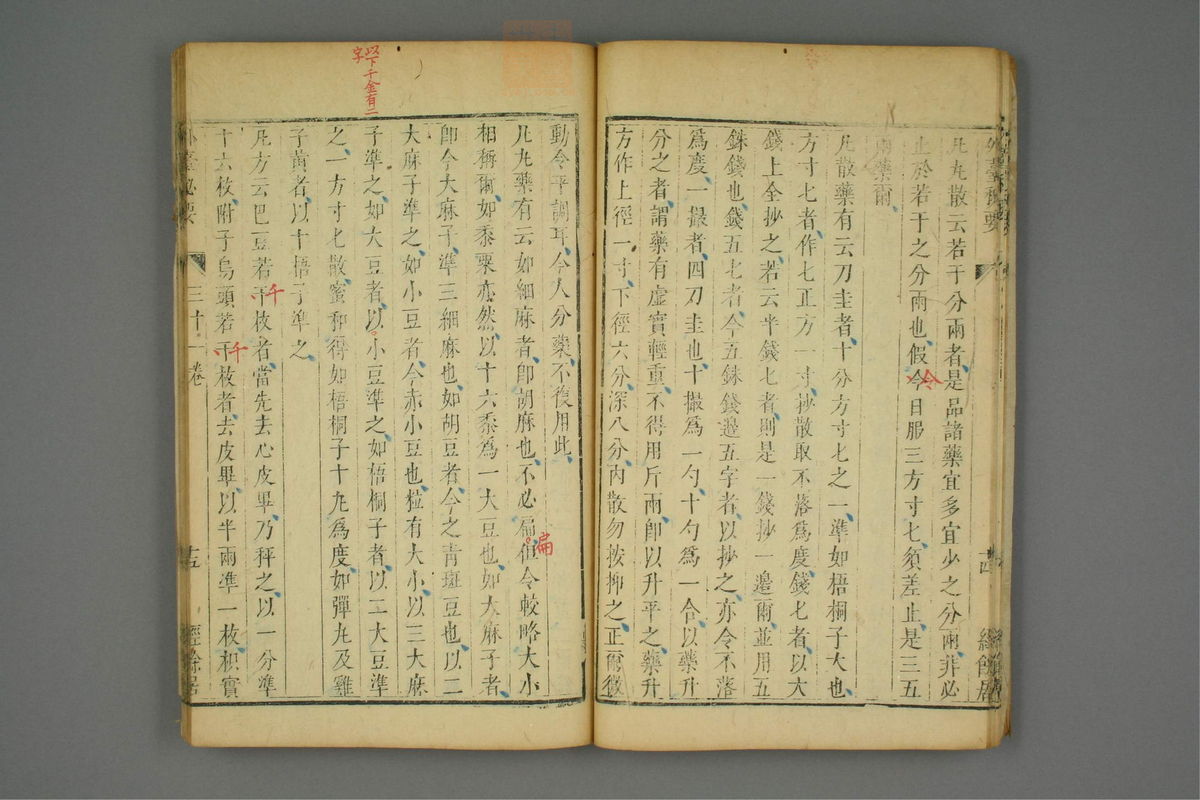 凡丸散云若干分兩者是品諸藥宜多宜少之分兩非必
止於若干之分兩也假令日服三方寸匕須差止是三五
兩藥爾
凡散藥有云刀圭者十分方寸匕之一準如梧桐子大也
方寸匕者作匕正方一寸抄散取不落爲度錢匕者以大
錢上全抄之若云半錢匕者則是一錢抄一邊爾並用五
銖錢也錢五匕者今五銖錢邊五字者以抄之亦令不落
爲度一撮者四刀圭也十撮爲一勺十勺爲一合以藥升
分之者謂藥有虛實輕重不得用斤兩即以升平之藥升
方作上徑一寸下徑六分深八分內散勿按抑之正爾微
外臺秘要
十四
經餘居
以下千金有二
字
動令平調耳今人分藥不復用此
凡丸藥有云如細麻者即胡麻也不必扁但令較略大小
扁
相稱爾如黍粟亦然以十六黍爲一大豆也如大麻子者
即今大麻子準三細麻也如胡豆者今之青斑豆也以二
大麻子準之如小豆者今赤小豆也粒有大小以三大麻
子準之如大豆者以小豆準之如梧桐子者以二大豆準
之一方寸匕散蜜和得如梧桐子十丸爲度如彈丸及雞
子黃者以十梧子準之
凡方云巴豆若干枚者當先去心皮畢乃秤之以一分準
千
十六枚附子烏頭若干枚者去皮畢以半兩準一枚枳實
千
外臺秘要
三十一卷
十五
經餘居